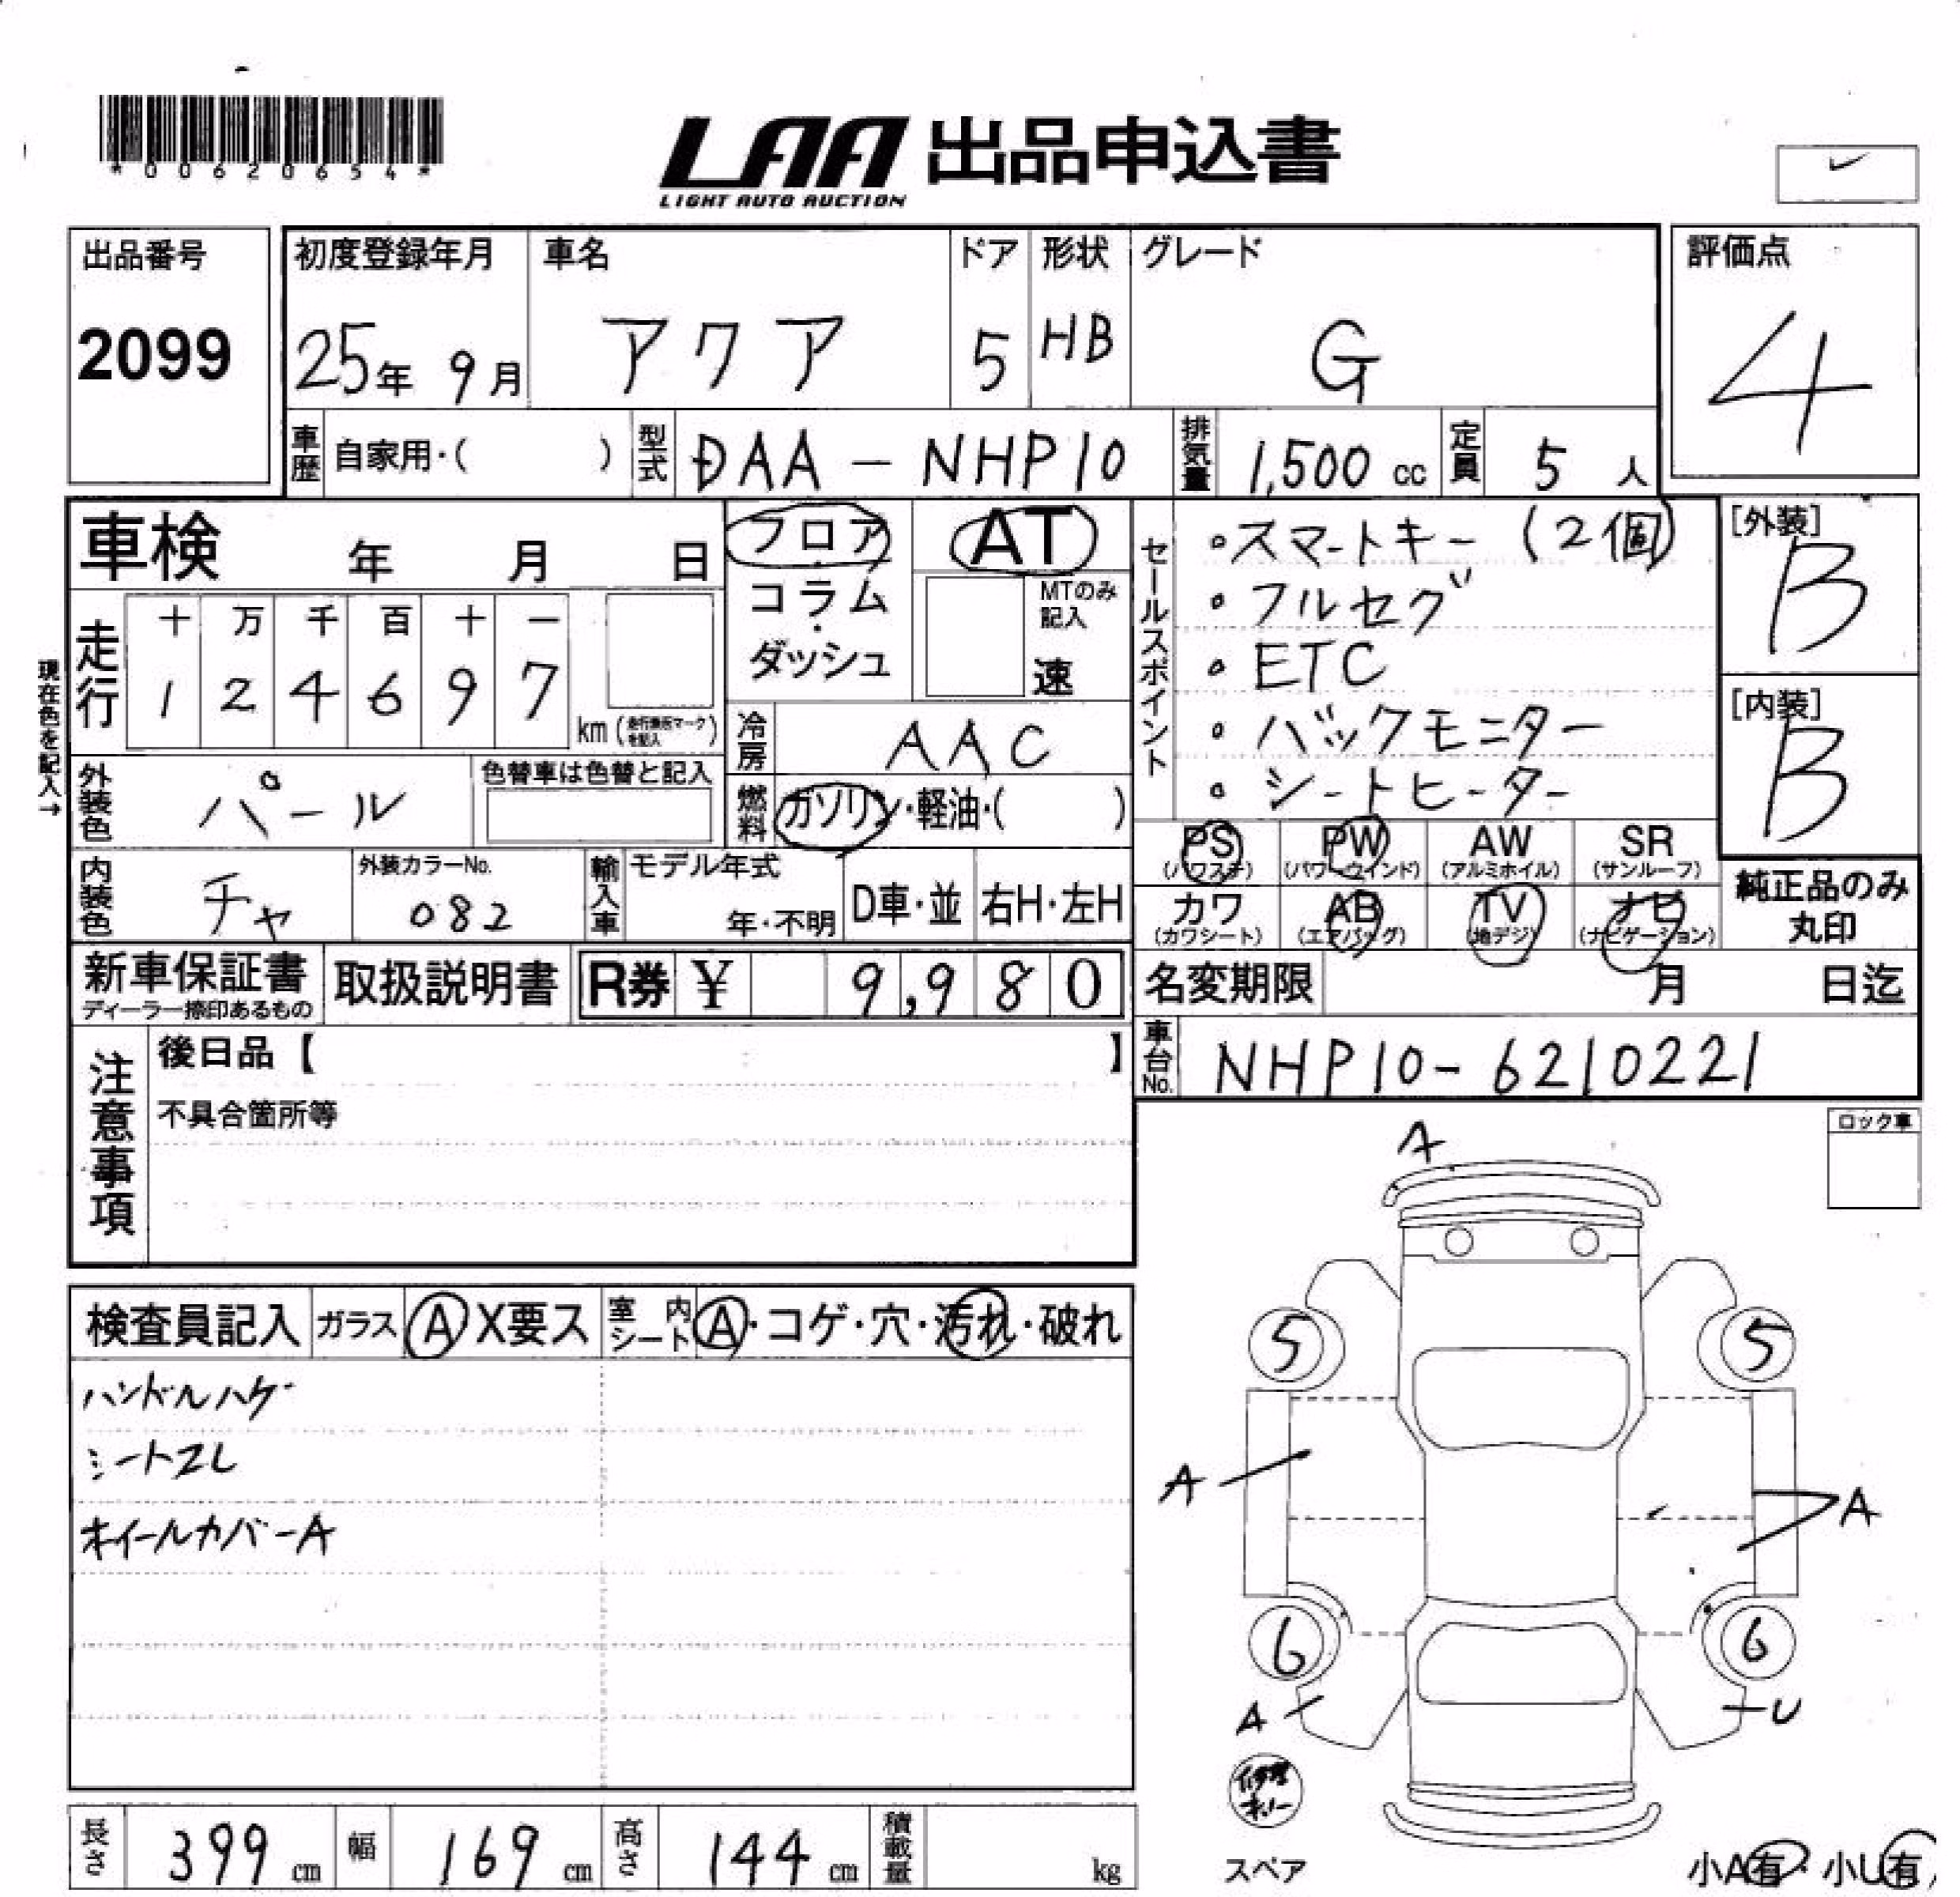 *00620654*
LAA 出品申込書
LIGHT AUTO AUCTION
出品番号
2099
初度登録年月
25年 9月
車名
アクア
ドア
5
形状
HB
グレード
G
評価点
4
車歴 自家用・( )
型式 DAA-NHP10
排気量 1,500 cc
定員 5 人
車検 年 月 日
フロア・コラム・ダッシュ
AT
MTのみ記入
速
セールスポイント
・スマートキー(2個)
・フルセグ
・ETC
・バックモニター
・シートヒーター
[外装]
B
[内装]
B
現在色を記入→
走行
十 万 千 百 十 一
1 2 4 6 9 7
km
冷房 AAC
燃料 ガソリン・軽油・( )
外装色 パール
色替車は色替と記入
内装色 チャ
外装カラーNo.
082
輸入車
モデル年式
年・不明
D車・並
右H・左H
PS (パワステ)
PW (パワーウィンド)
AW (アルミホイル)
SR (サンルーフ)
カワ (カワシート)
AB (エアバッグ)
TV (地デジ)
ナビ (ナビゲーション)
純正品のみ
丸印
新車保証書
ディーラー捺印あるもの
取扱説明書
R券 ¥ 9,980
名変期限 月 日迄
車台No. NHP10-6210221
注意事項
後日品【 】
不具合箇所等
ロック車
検査員記入
ガラス A X要ス
室内シート A・コゲ・穴・汚れ・破れ
ハンドルハゲ
シートスレ
ホイールカバーA
A
5 5
A A
6 6
A U
スペア
小A有・小U有
長さ 399 cm
幅 169 cm
高さ 144 cm
積載量 kg